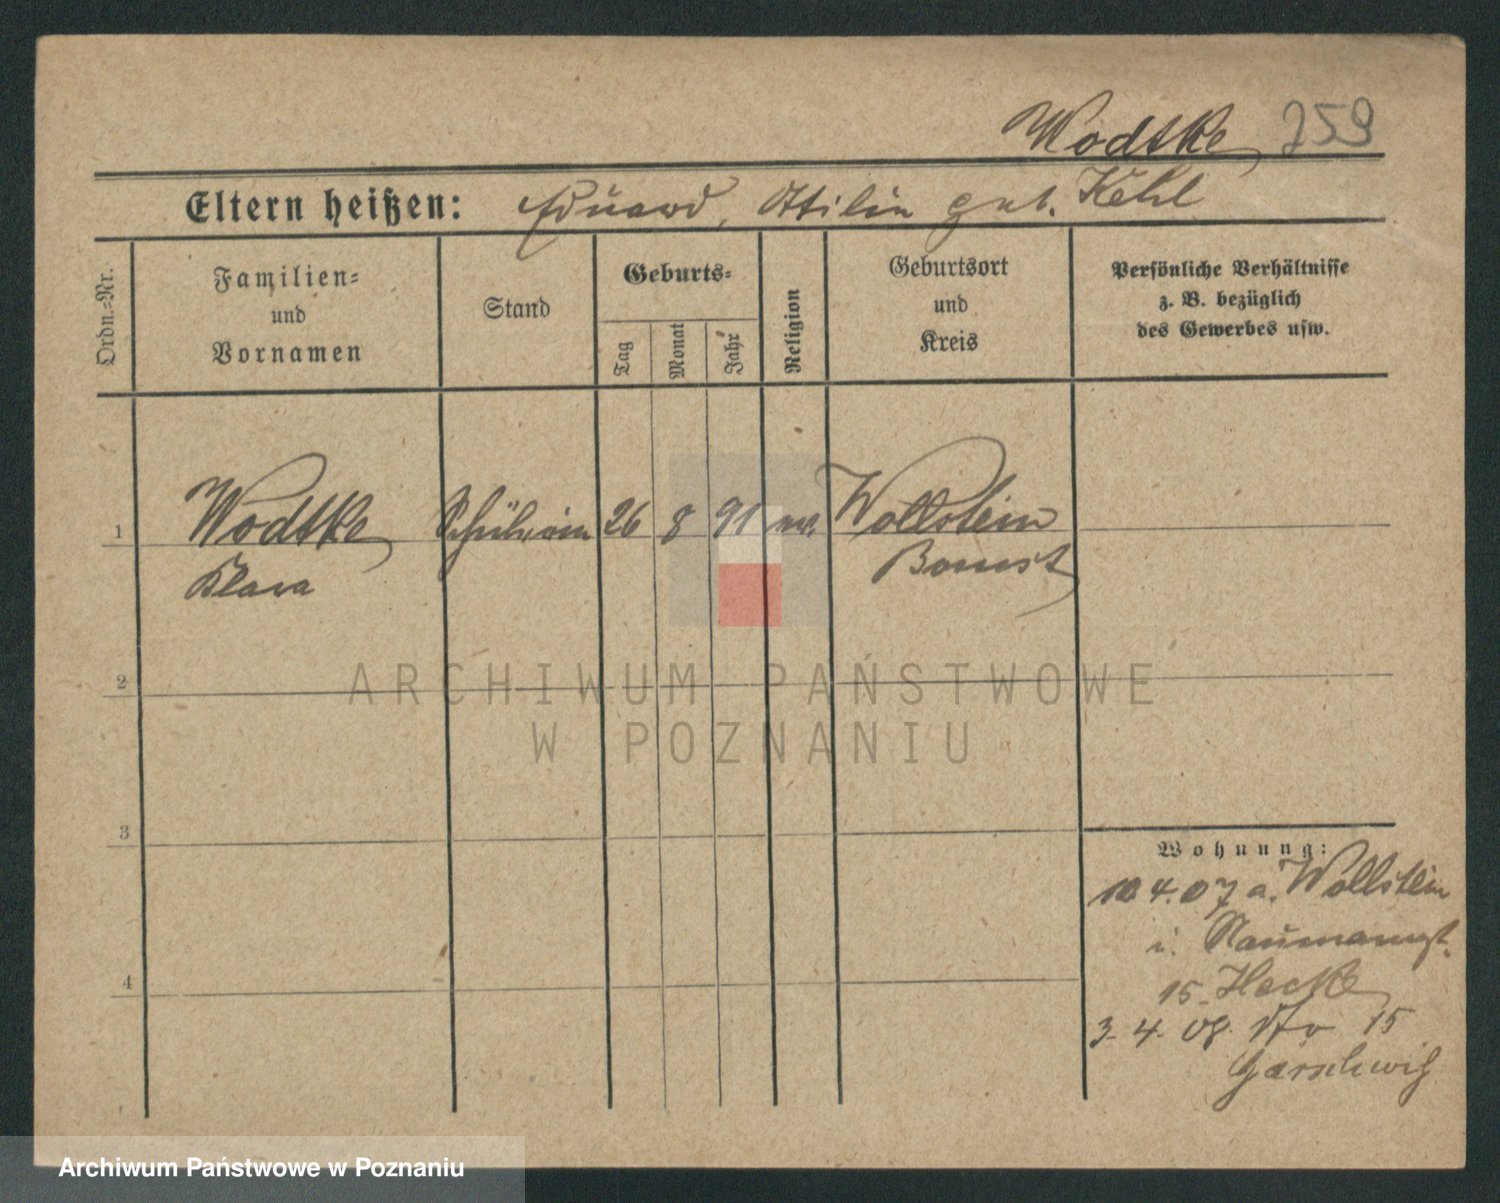 Wodtke 759
Eltern heißen: Eduard, Ottilie geb. Kehl
Ordn.-Nr.:
Familien-
und
Vornamen
Stand
Geburts-
Tag
Monat
Jahr
Religion
Geburtsort
und
Kreis
Persönliche Verhältnisse
z. B. bezüglich
des Gewerbes usw.
1 Wodtke Schülerin 26 8 91 ev. Wollstein
Klara Bomst
2
ARCHIWUM PAŃSTWOWE
W POZNANIU
3
Wohnung:
10 4. 07 a. Wollstein
i. Naumannst.
15 Hecke
4
3. 4. 08. dto 15
Archiwum Państwowe w Poznaniu